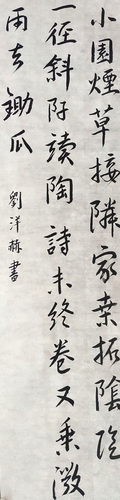 小園煙草接隣家桑柘陰陰
一徑斜卧讀陶詩未終卷又乗微
雨去鋤瓜
劉洋赫書